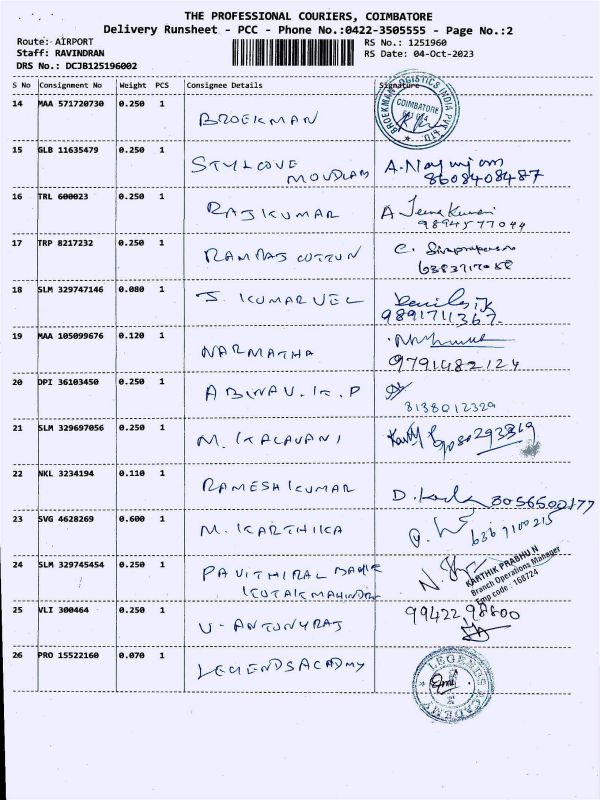 THE PROFESSIONAL COURIERS, COIMBATORE
Delivery Runsheet - PCC - Phone No.:0422-3505555 - Page No.:2
Route: AIRPORT
RS No.: 1251960
Staff: RAVINDRAN
RS Date: 04-Oct-2023
DRS No.: DCJB125196002
S No Consignment No Weight PCS Consignee Details Signature
14 MAA 571720730 0.250 1 BROEKMAN
BROEKMAN LOGISTICS INDIA PVT. LTD. COIMBATORE
15 GLB 11635479 0.250 1 STYLCOVE
MOUDLAM 8608408487
16 TRL 600023 0.250 1 RAJKUMAR A Jeeva Kumari
9894577044
17 TRP 8217232 0.250 1 RAMRAJ COTTON C.
18 SLM 329747146 0.080 1 J. KUMARVEL
9891711367
19 MAA 105099676 0.120 1 NARMATHA
9791482124
20 DPI 36103450 0.250 1 ABINAV.K.P
8138012329
21 SLM 329697056 0.250 1 M. KALAVANI
22 NKL 3234194 0.110 1 RAMESHKUMAR D. 8056500177
23 SVG 4628269 0.600 1 M. KARTHIKA 6369100215
24 SLM 329745454 0.250 1 PAVITHIRAL BANK
KOTAK MAHINDRA
KARTHIK PRABHU N
Branch Operations Manager
Emp code : 168724
25 VLI 300464 0.250 1 U- ANTONYRAJ 9942298800
26 PRO 15522160 0.070 1 LEGENDSACADMY
LEGENDS ACADEMY